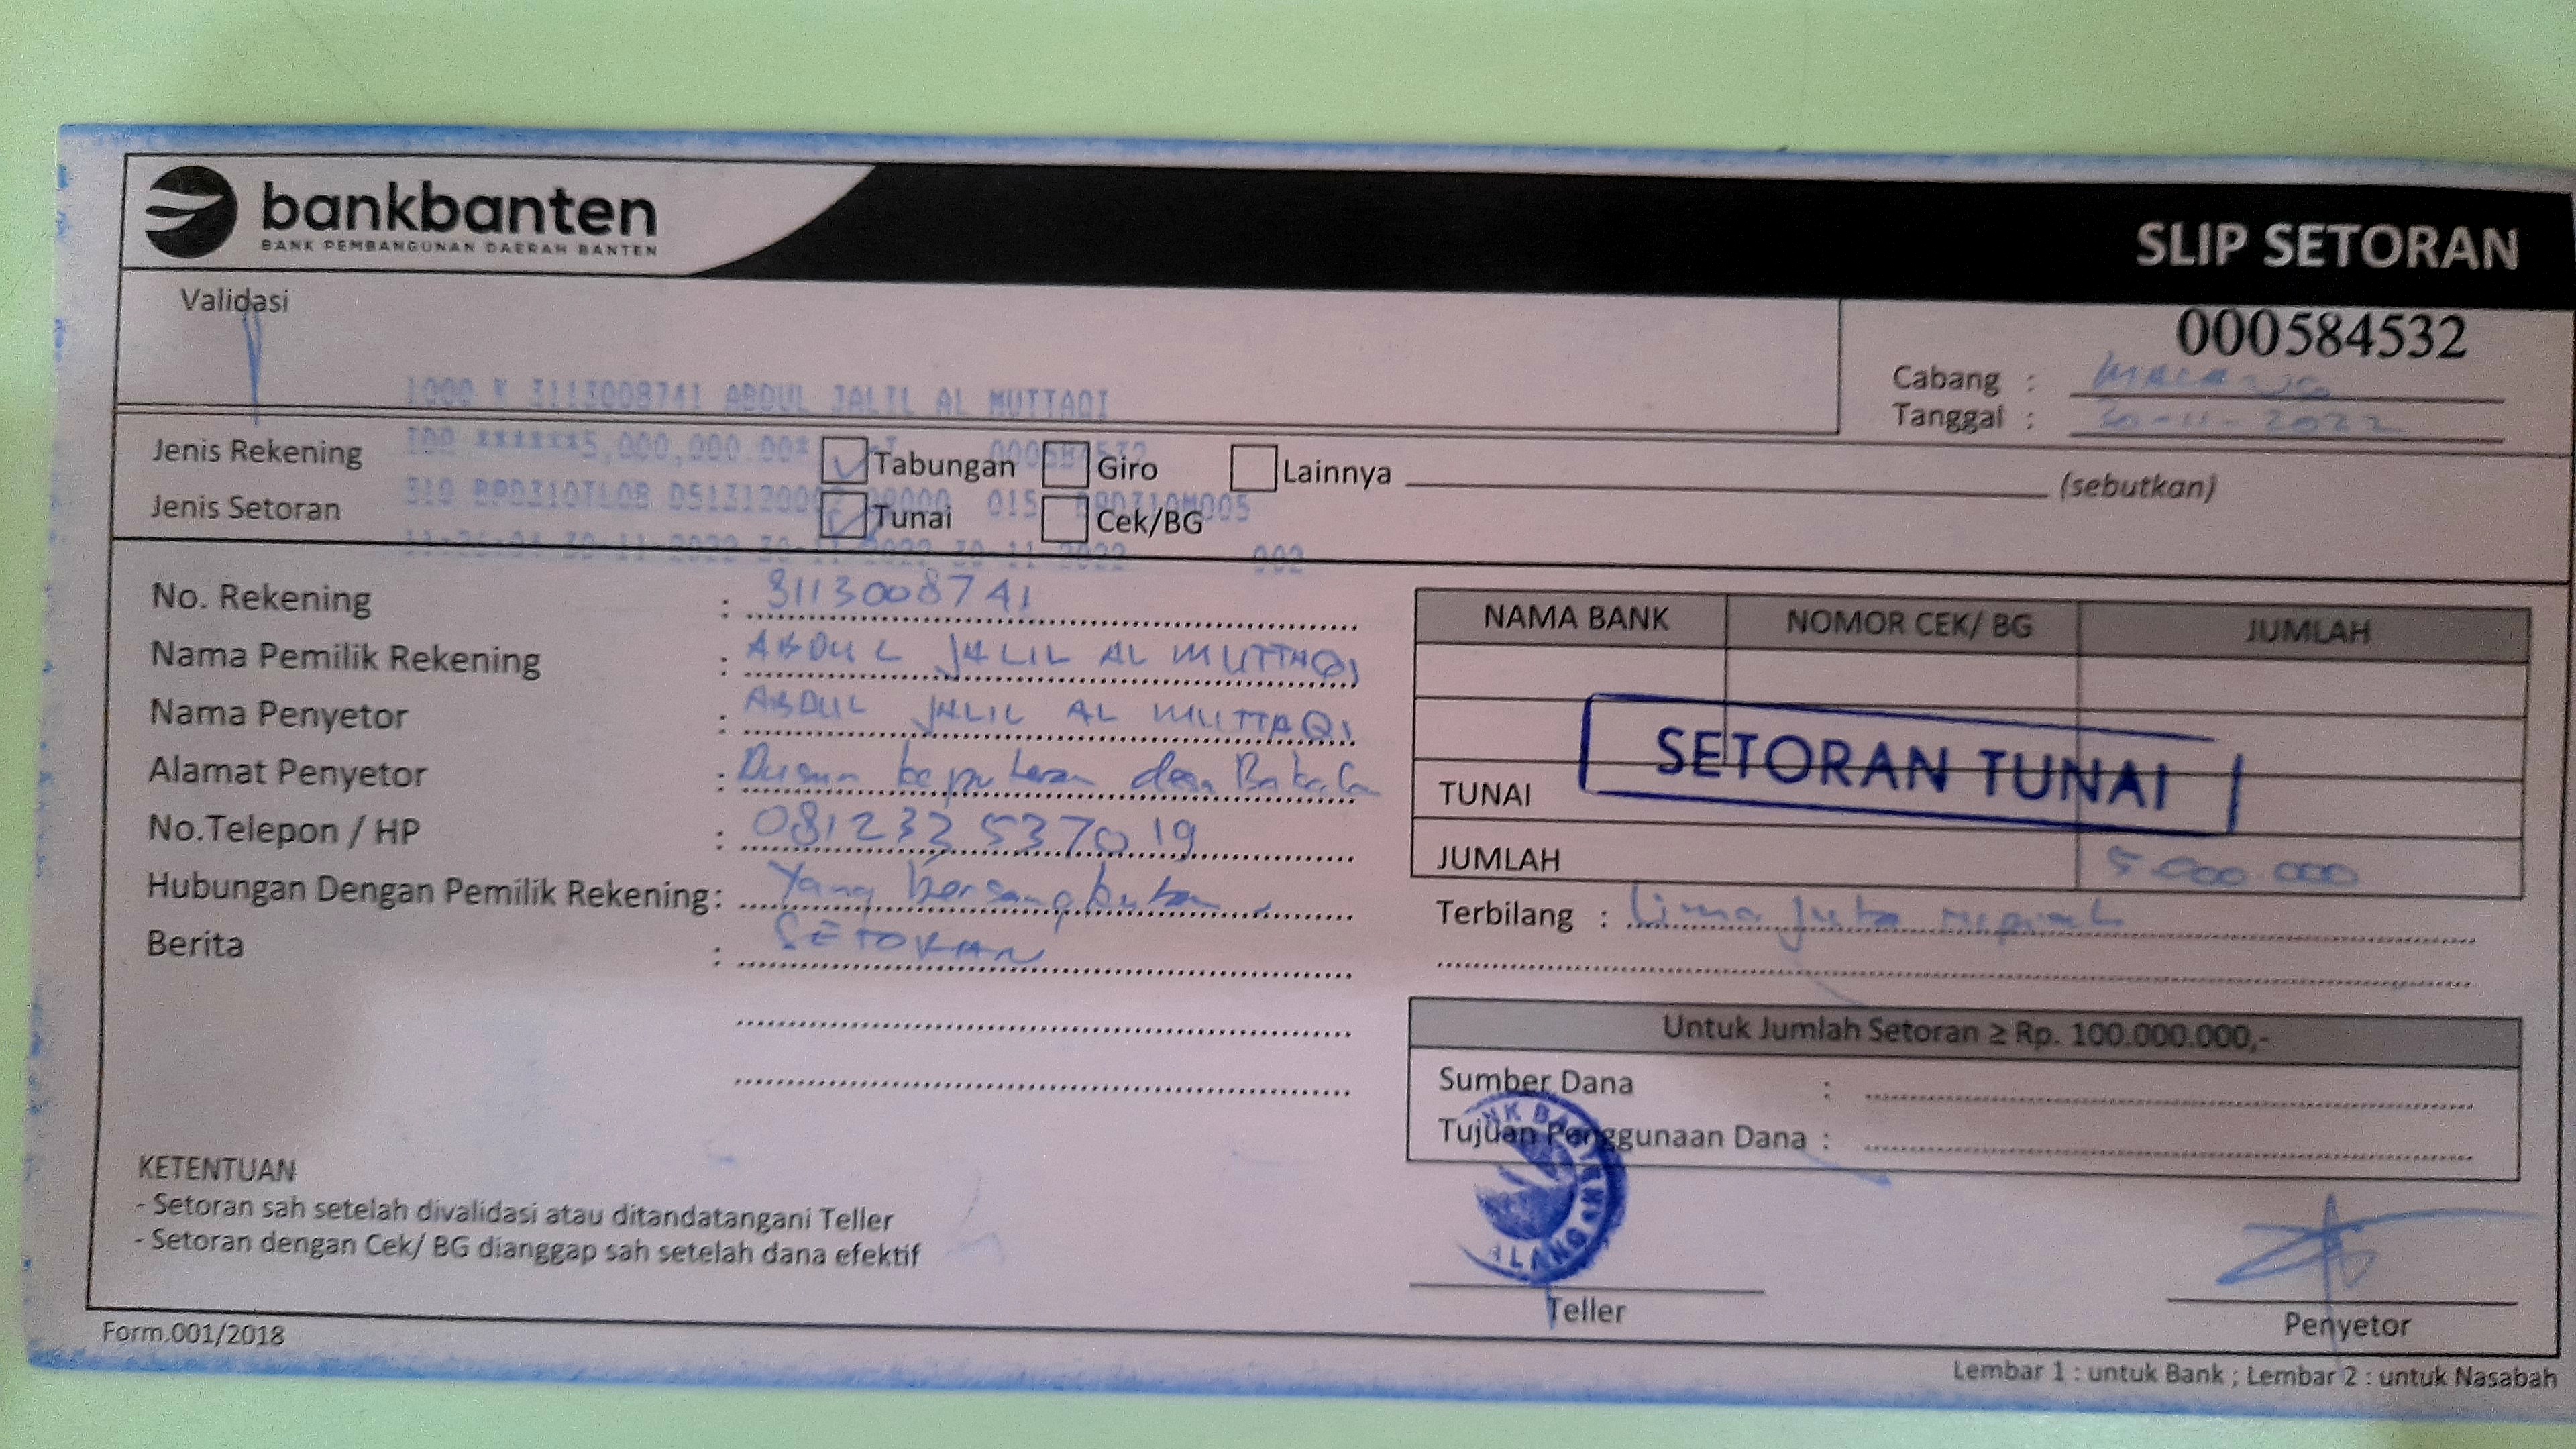 bankbanten
BANK PEMBANGUNAN DAERAH BANTEN
SLIP SETORAN
Validasi
000584532
Cabang : MALANG
Tanggal : 30-11-2022
1000 K 3113008741 ABDUL JALIL AL MUTTAQI
IDR ******5,000,000.00* 000584532
Jenis Rekening Tabungan Giro Lainnya (sebutkan)
310 BPD310TL08 015
Jenis Setoran Tunai Cek/BG
30-11-2022 30-11-2022 30-11-2022 002
No. Rekening : 3113008741
Nama Pemilik Rekening : ABDUL JALIL AL MUTTAQI
Nama Penyetor : ABDUL JALIL AL MUTTAQI
Alamat Penyetor : Dusun desa
No.Telepon / HP : 081233537019
Hubungan Dengan Pemilik Rekening: Yang bersangkutan
Berita : SETORAN
NAMA BANK NOMOR CEK/ BG JUMLAH
SETORAN TUNAI
TUNAI
JUMLAH 5.000.000
Terbilang : lima juta rupiah
Untuk Jumlah Setoran ≥ Rp. 100.000.000,-
Sumber Dana :
Tujuan Penggunaan Dana :
KETENTUAN
- Setoran sah setelah divalidasi atau ditandatangani Teller
- Setoran dengan Cek/ BG dianggap sah setelah dana efektif
Teller
Penyetor
Form.001/2018
Lembar 1 : untuk Bank ; Lembar 2 : untuk Nasabah